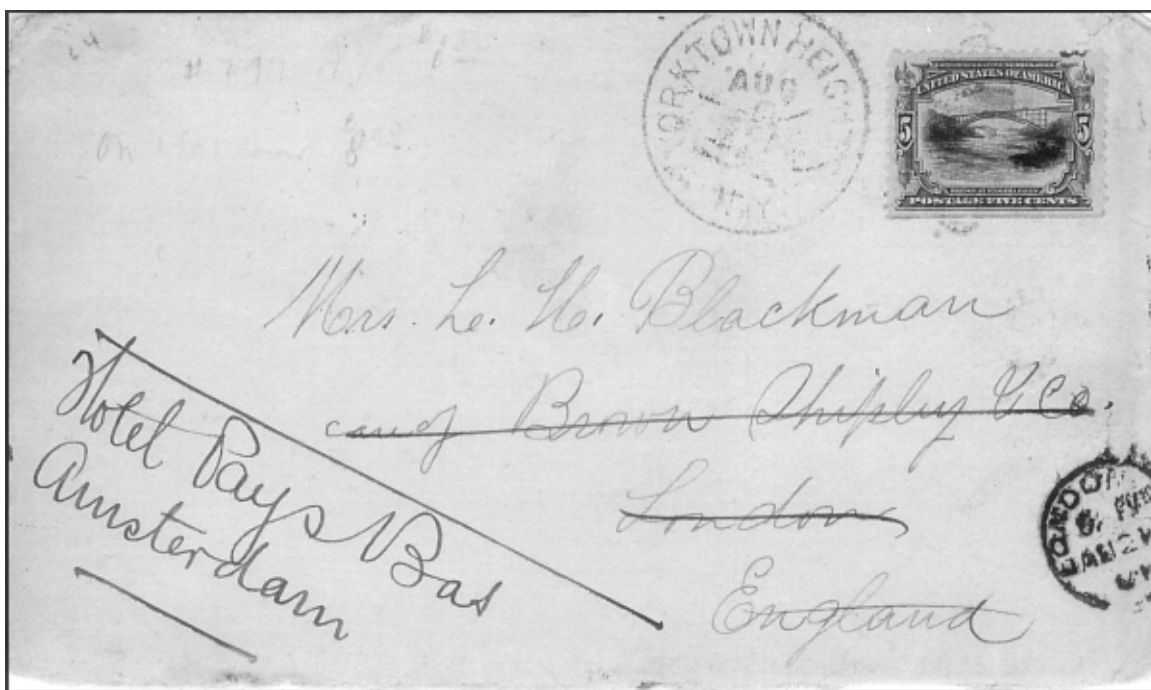 YORKTOWN HEIG
AUG
N.Y.
UNITED STATES OF AMERICA
5 5
POSTAGE FIVE CENTS
Mrs. L. H. Blackman
care of Brown Shipley & Co.
London
England
Hotel Pays Bas
Amsterdam
LONDON
AU 2